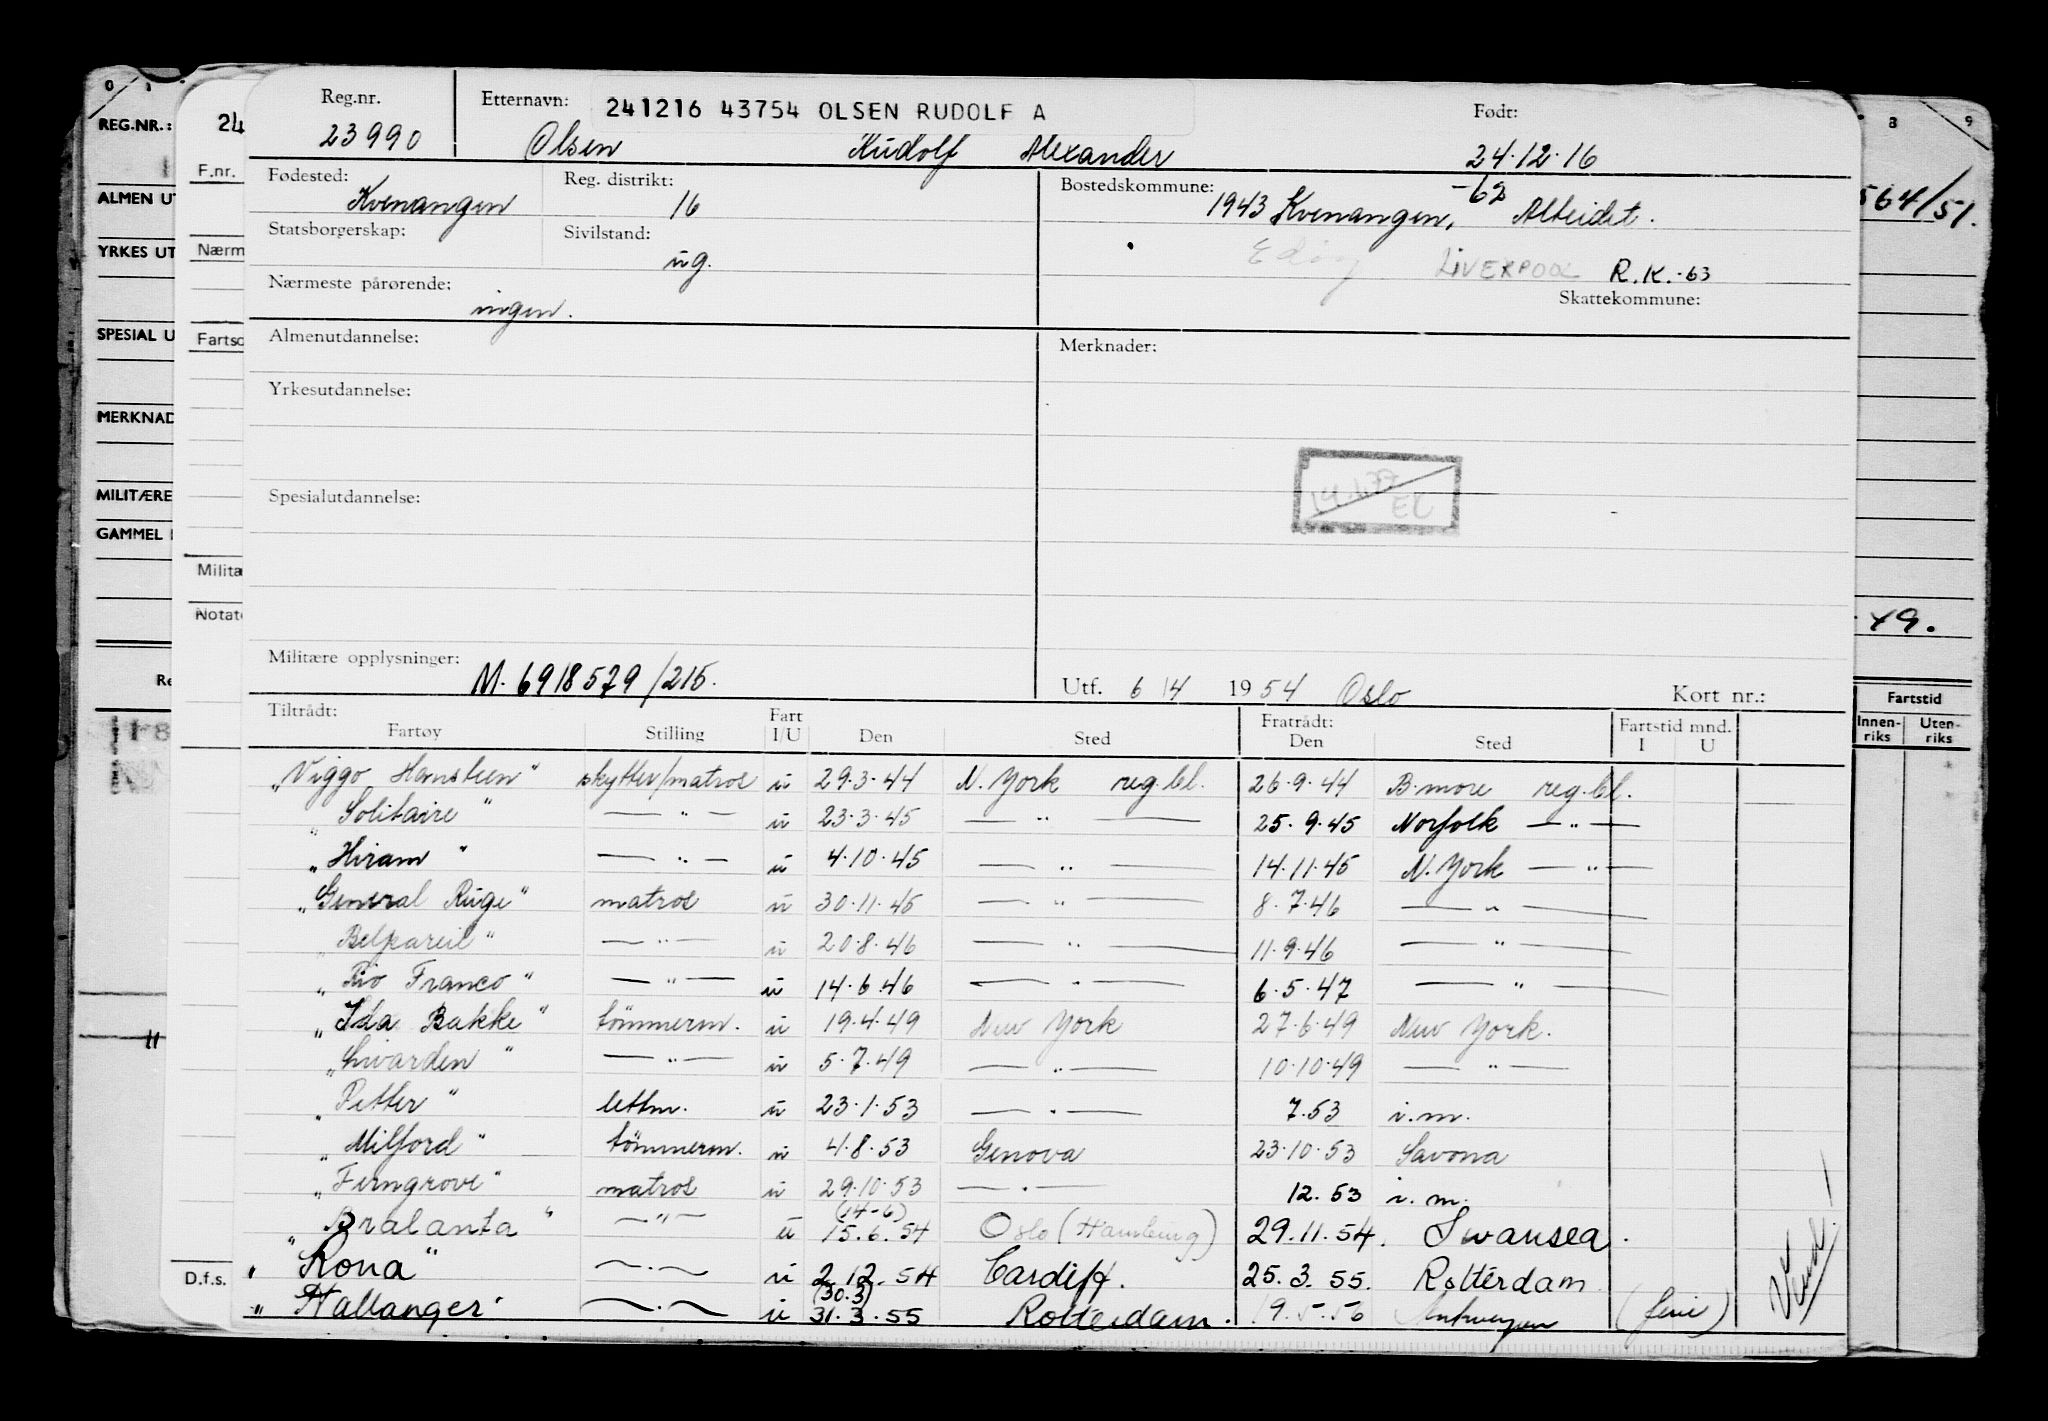 Reg.nr. Etternavn: 241216 43754 OLSEN RUDOLF A Født:
23990 Olsen Rudolf Alexander 24.12.16
Fødested: Reg. distrikt: Bostedskommune: -62
Kvenangen 16 1943 Kvenangen, Alteidet.
Statsborgerskap: Sivilstand:
ug. LIVERPOOL R.K.-63
Nærmeste pårørende: Skattekommune:
ingen.
Almenutdannelse: Merknader:
Yrkesutdannelse:
Spesialutdannelse:
Militære opplysninger: M. 6918579/215.
Utf. 6/4 1954 Oslo Kort nr.:
Tiltrådt: Fart Fratrådt: Fartstid mnd.
Fartøy Stilling I/U Den Sted Den Sted I U
"Viggo Hansteen" skytter/matros u 29.3.44 N. York reg.bl. 26.9.44 B.more reg.bl.
"Solitaire" — " — u 23.3.45 — " — 25.9.45 Norfolk — " —
"Hiram" — " — u 4.10.45 — " — 14.11.45 N. York — " —
"General Ruge" matros u 30.11.45 — " — 8.7.46 — " —
"Belpareil" — " — u 20.8.46 — " — 11.9.46 — " —
"Rio Franco" — " — u 14.6.46 — " — 6.5.47 — " —
"Ida Bakke" tømmerm. u 19.4.49 New York 27.6.49 New York.
"Livarden" — " — u 5.7.49 — " — 10.10.49 — " —
"Petter" lettm. u 23.1.53 — " — 7.53 i.m.
"Milford" tømmerm. u 4.8.53 Genova 23.10.53 Savona
"Ferngrove" matros u 29.10.53 — " — 12.53 i.m.
"Bralanta" — " — u (14-6) 15.6.54 Oslo (Hamburg) 29.11.54. Swansea.
"Rona" — " — u 2.12.54 Cardiff. 25.3.55. Rotterdam
"Hallanger" — " — u (30.3) 31.3.55 Rotterdam. 19.5.56 Antwerpen (ferie)
REG.NR.: 24
F.nr.
ALMEN UT
564/51.
Nærm
YRKES UT
SPESIAL U
Fartsc
MERKNAD
MILITÆRE
GAMMEL
Militæ
Notat
49.
Fartstid
Innen-
riks
Uten-
riks
D.f.s.